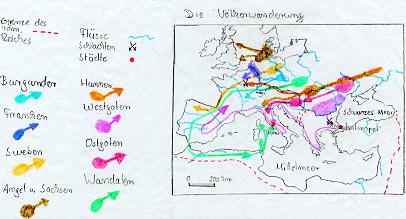 Die Völkerwanderung
Grenze des
röm.
Reiches
Flüsse
Schlachten
Städte
Burgunden
Hunnen
Franken
Westgoten
Sweben
Ostgoten
Angel u. Sachsen
Wandalen
Schwarzes Meer
Mittelmeer
0